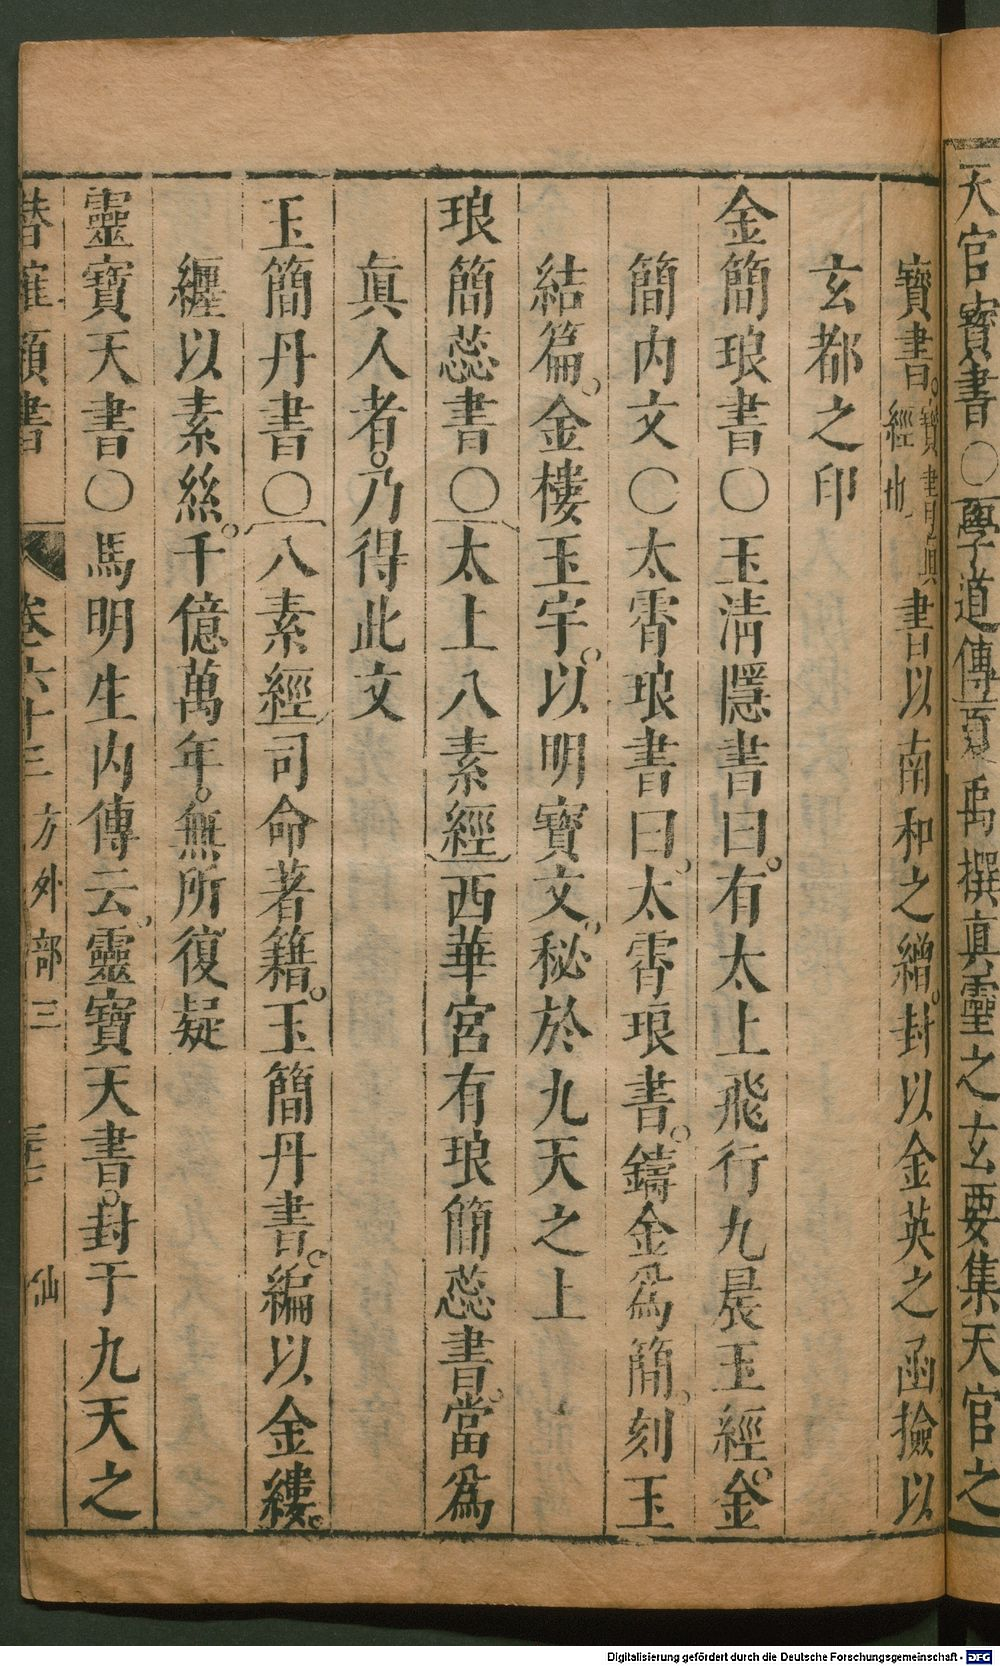 天官寶書○學道傳夏禹撰真靈之玄要集天官之
寶書。寶書明興經也書以南和之繒。封以金英之函。撿以
玄都之印
金簡琅書○玉淸隱書曰。有太上飛行九晨玉經。金
簡内文○太霄琅書曰。太霄琅書。鑄金爲簡。刻玉
結篇。金樓玉宇。以明寶文。秘於九天之上
琅簡蕊書○太上八素經西華宮有琅簡蕊書。當爲
眞人者。乃得此文
玉簡丹書○八素經司命著籍。玉簡丹書。編以金縷。
纒以素絲。千億萬年。無所復疑
靈寶天書○馬明生内傳云。靈寶天書。封于九天之
潛確類書 卷六十三 方外部三 仙
Digitalisierung gefördert durch die Deutsche Forschungsgemeinschaft - DFG